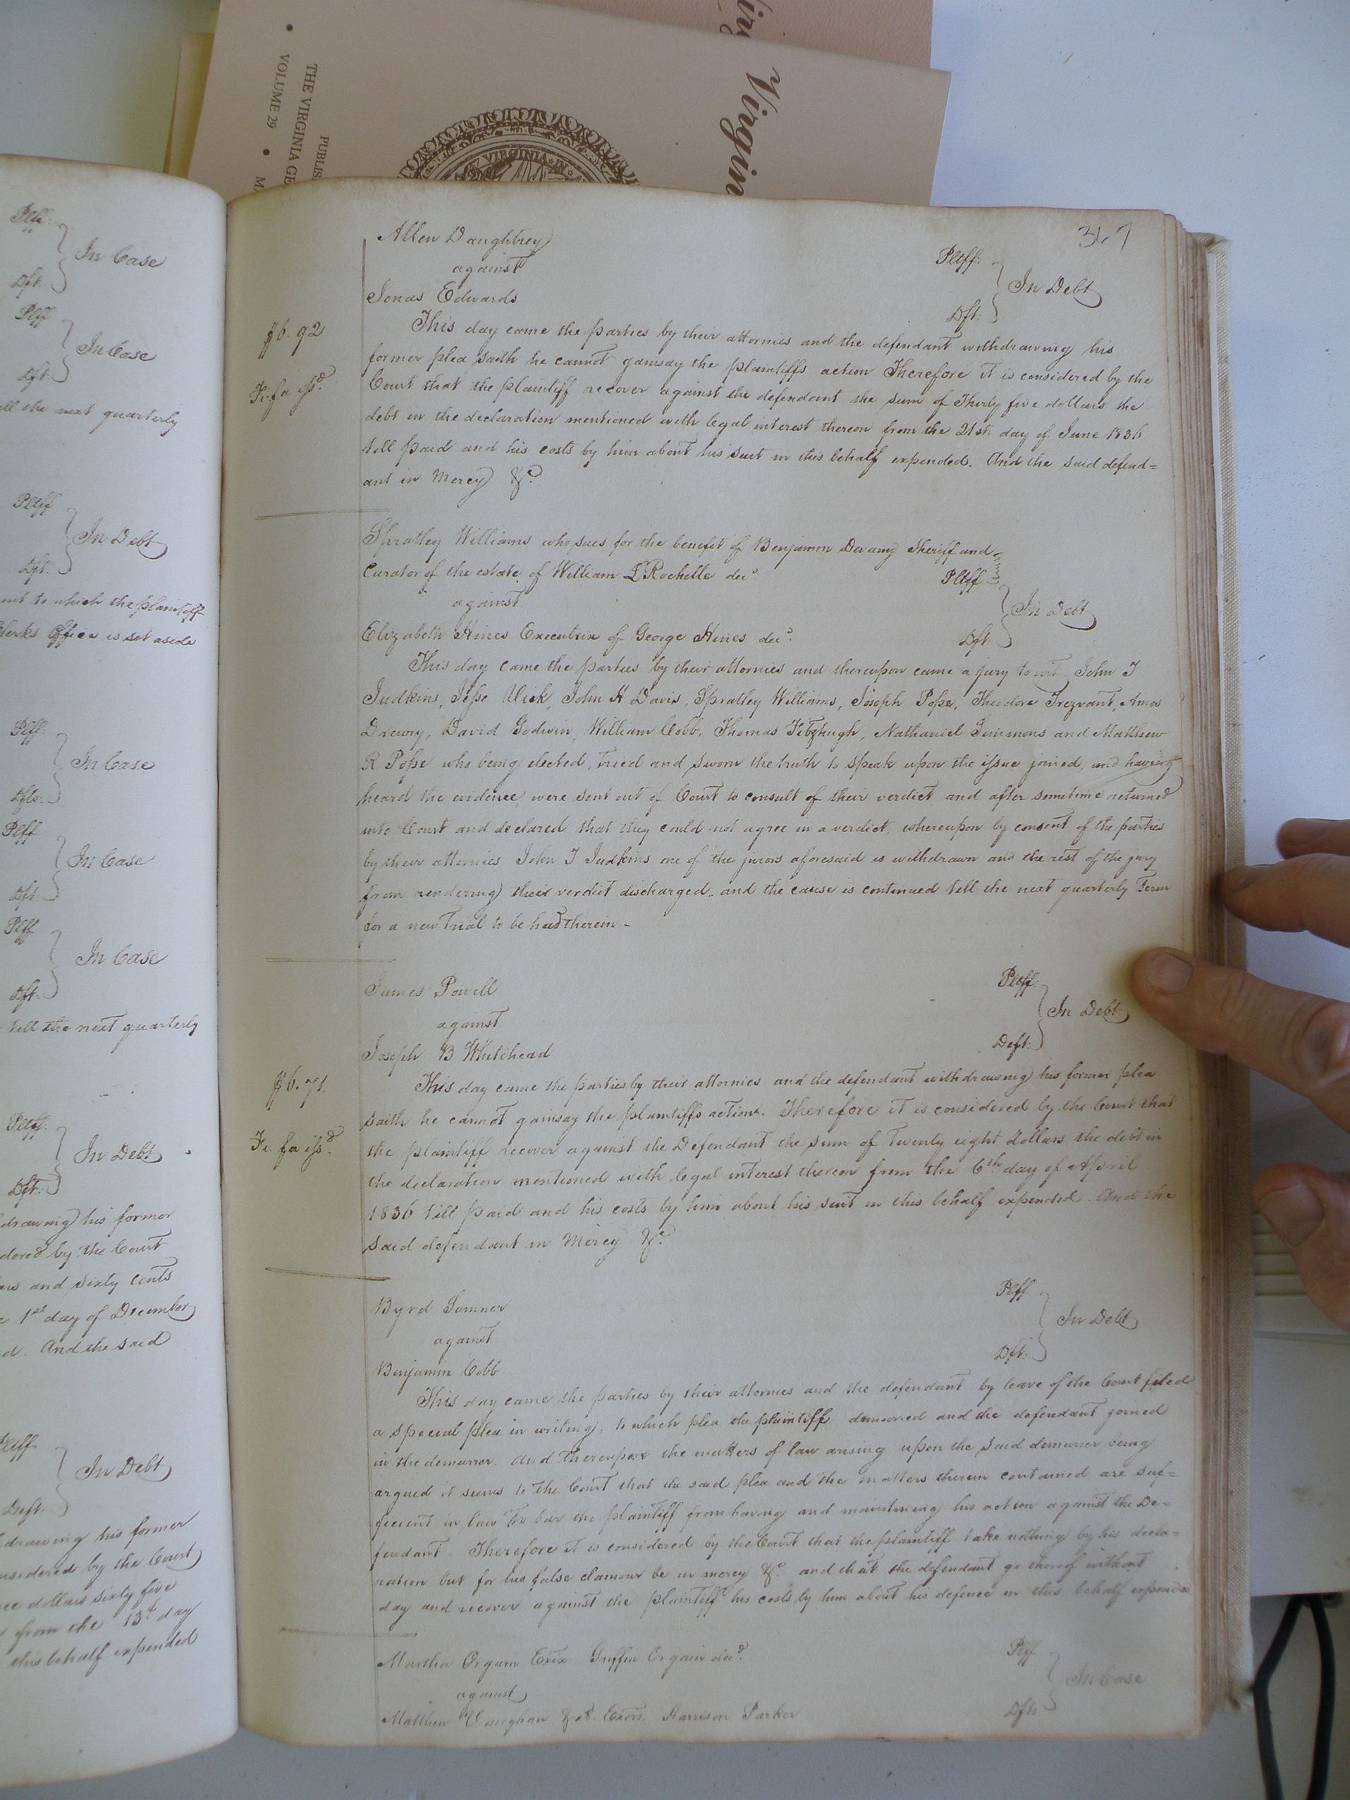 Virgin
THE VIRGINIA GE
VOLUME 29 • M
PUBLIS
VIRGINIA IN
Pltff
In Case
Dft.
Pltff
In Case
Dft.
till the next quarterly
Pltff
In Debt
Dft.
to which the plaintiff
Clerks Office is set aside
Pltff
In Case
Dfts.
Pltff
In Case
Dft.
Pltff
In Case
Dft.
till the next quarterly
Pltff
In Debt
Dft.
drawing his former
dered by the Court
and sixty cents
1st day of December
d. And the said
Pltff
In Debt
Deft.
drawing his former
nsidered by the Court
dollars sixty five
from the 13th day
this behalf expended
347
Allen Daughtrey Pltff.
against In Debt
Jonas Edwards Dft.
$6.92 This day came the parties by their attornies and the defendant withdrawing his
former plea saith he cannot gainsay the plaintiffs action Therefore it is considered by the
Fi. fa issd. Court that the plaintiff recover against the defendant the sum of Thirty five dollars the
debt in the declaration mentioned with legal interest thereon from the 21st day of June 1836
till paid and his costs by him about his suit in this behalf expended. And the said defend=
ant in Mercy &c.
Spratley Williams who sues for the benefit of Benjamin Devany Sheriff and
Curator of the estate of William L Rochelle decd. Pltff
against In Debt
Elizabeth Hines Executrix of George Hines decd. Dft.
This day came the parties by their attornies and thereupon came a jury to wit John T
Judkins, Jesse Vick, John H Davis, Spratley Williams, Joseph Pope, Theodore Trezvant, Amos
Drewry, David Godwin, William Cobb, Thomas Fitzhugh, Nathaniel Simmons and Matthew
R Pope who being elected, tried and sworn the truth to speak upon the issue joined, and having
heard the evidence were sent out of Court to consult of their verdict and after sometime returned
into Court and declared that they could not agree in a verdict, whereupon by consent of the parties
by their attornies John T Judkins one of the jurors aforesaid is withdrawn and the rest of the jury
from rendering their verdict discharged. and the cause is continued till the next quarterly Term
for a new Trial to be had therein -
James Powell Pltff
against In Debt
Joseph B Whitehead Deft.
$6.71 This day came the parties by their attornies and the defendant withdrawing his former plea
saith he cannot gainsay the plaintiffs action. Therefore it is considered by the Court that
Fi. fa issd. the plaintiff recover against the Defendant the sum of Twenty eight Dollars the debt in
the declaration mentioned with legal interest thereon from the 6th day of April
1836 till paid and his costs by him about his suit in this behalf expended And the
said defendant in Mercy &c.
Byrd Sumner Pltff
against In Debt
Benjamin Cobb Dft.
This day came the parties by their attornies and the defendant by leave of the Court filed
a special plea in writing, to which plea the plaintiff demurred and the defendant joined
in the demurrer. And thereupon the matters of law arising upon the said demurrer being
argued it seems to the Court that the said plea and the matters therein contained are suf=
ficient in law to bar the plaintiff from having and maintaining his action against the De=
fendant. Therefore it is considered by the Court that the plaintiff take nothing by his decla=
ration but for his false clamour be in mercy &c. and that the defendant go thereof without
day and recover against the plaintiff his costs by him about his defence in this behalf expended
Martha Orgain Exix Griffin Orgain decd. Pltff
against In Case
Matthew Vaughan & al. Exors. Harrison Parker Dfts